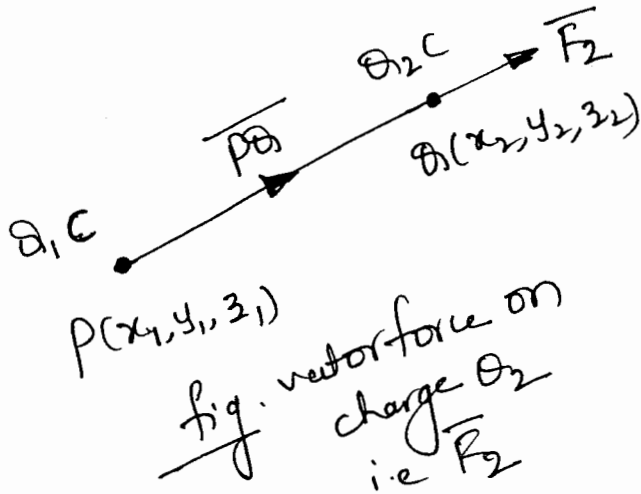 F̅₂
Q₂ C
P̅Q̅
Q(x₂, y₂, z₂)
Q₁ C
P(x₁, y₁, z₁)
fig. vector force on
charge Q₂
i.e F̅₂